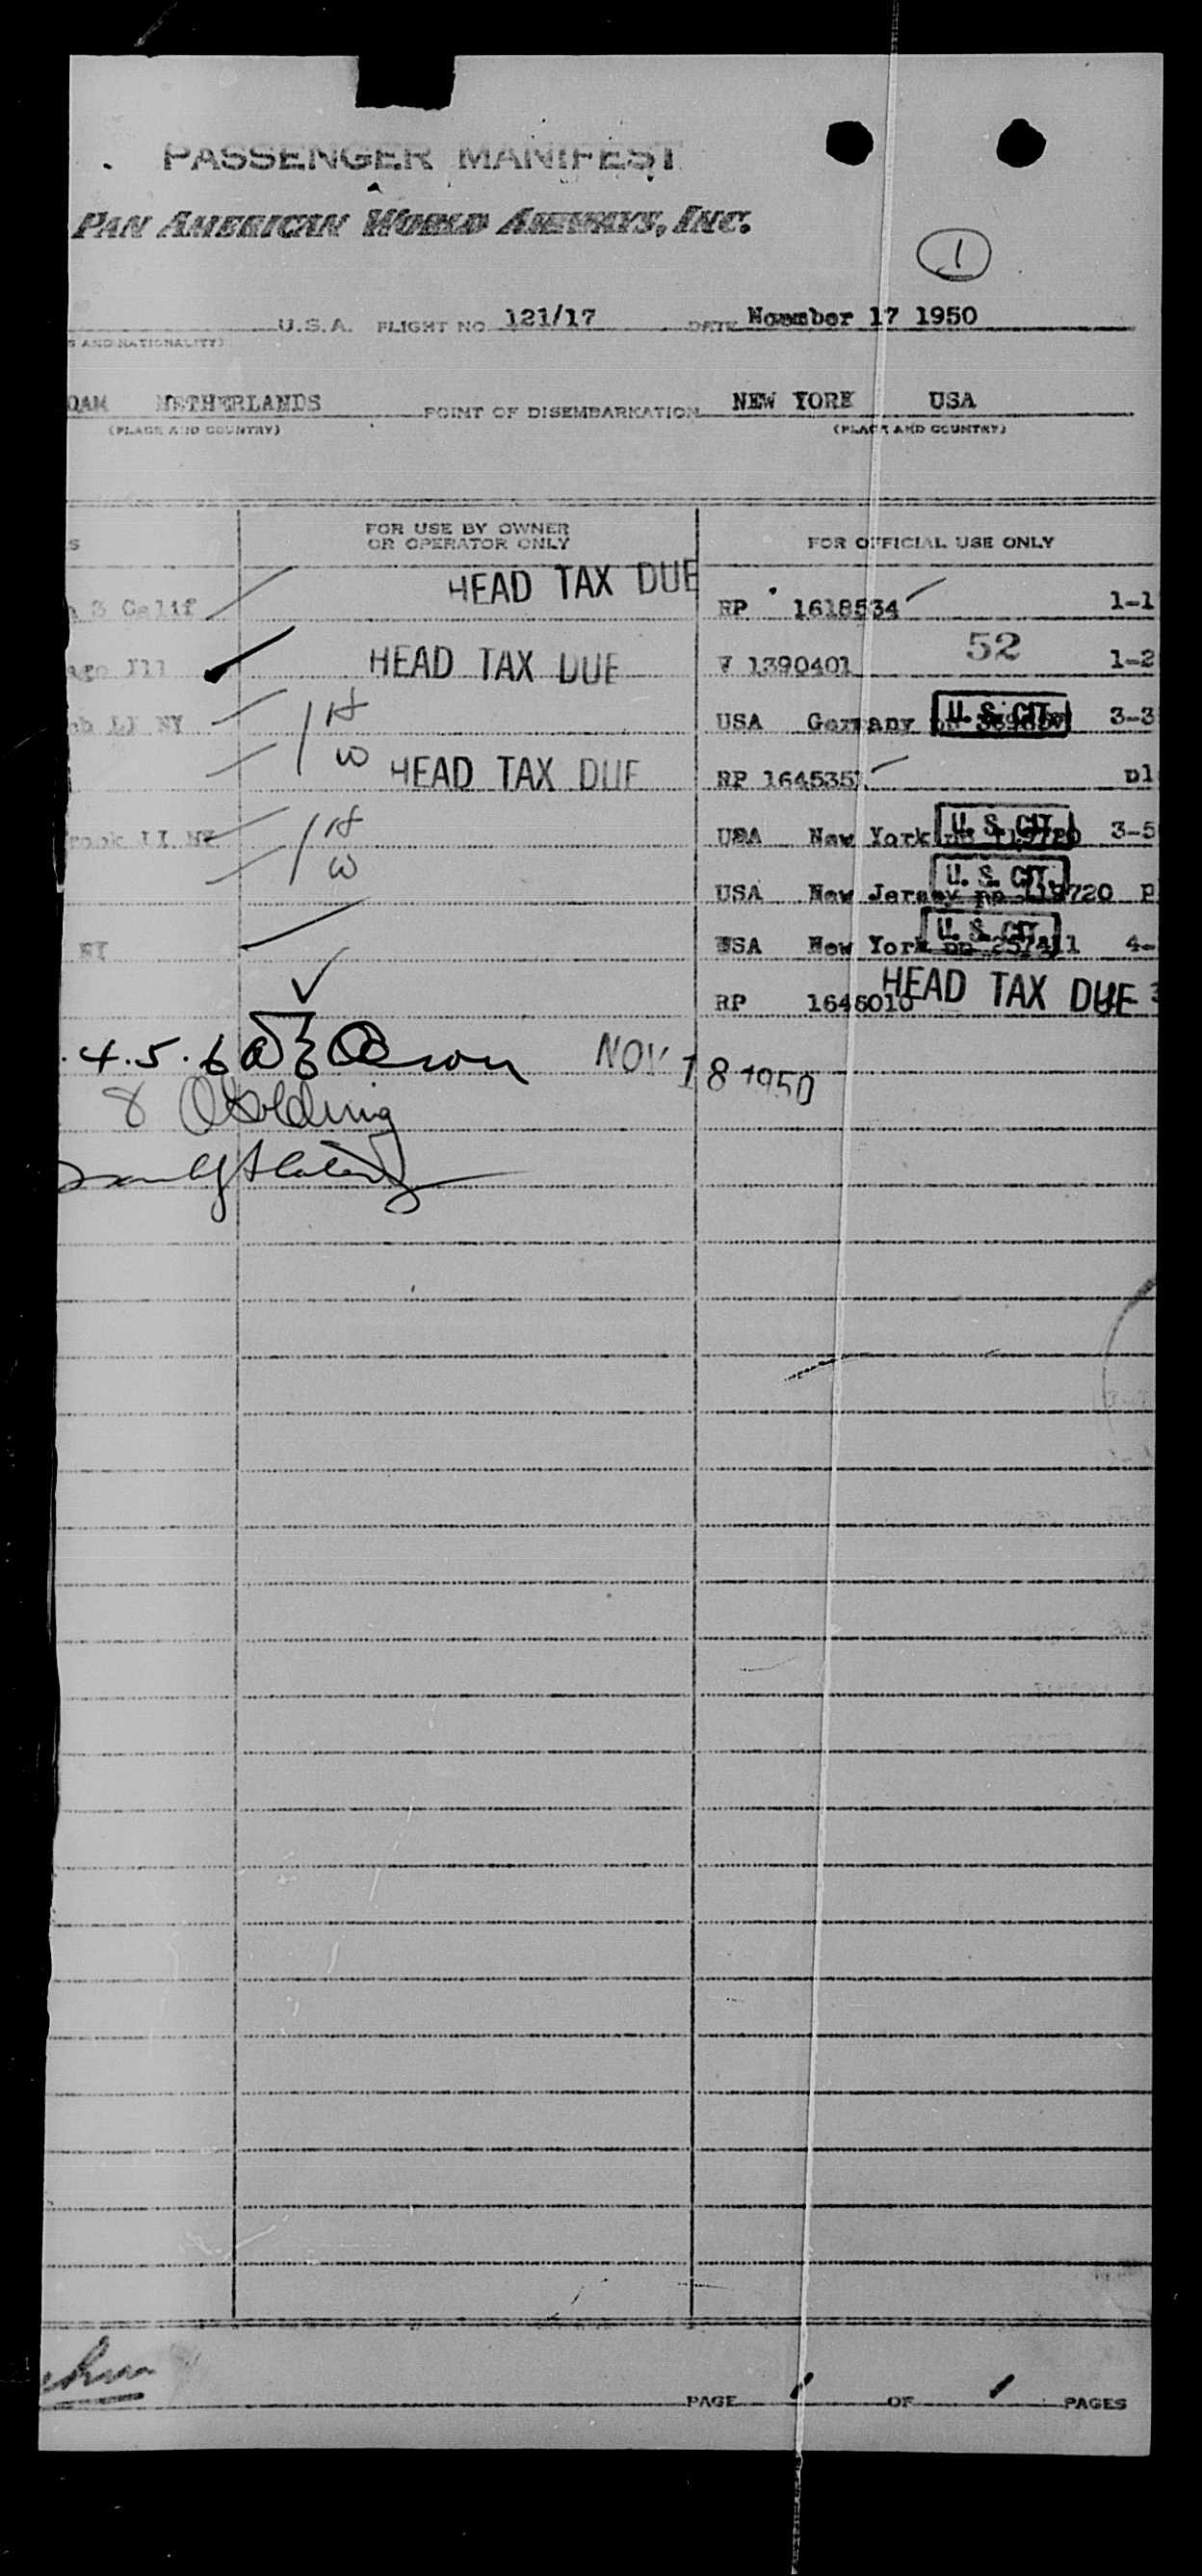 PASSENGER MANIFEST
PAN AMERICAN WORLD AIRWAYS, INC.
1
U.S.A. FLIGHT NO. 121/17 DATE November 17 1950
S AND NATIONALITY)
DAM NETHERLANDS POINT OF DISEMBARKATION NEW YORK USA
(PLACE AND COUNTRY) (PLACE AND COUNTRY)
S FOR USE BY OWNER OR OPERATOR ONLY FOR OFFICIAL USE ONLY
Calif HEAD TAX DUE RP 1618534 1-1
ago Ill HEAD TAX DUE V 1390401 52 1-2
LI NY H USA Germany pp U.S. CIT. 3-3
W HEAD TAX DUE RP 164535 p1
rook LI NY H USA New York pp U.S. CIT. 3-5
W USA New Jersey pp 119720 U.S. CIT. P
NY USA New York pp U.S. CIT. 4-
RP 1646010 HEAD TAX DUE 3
.4.5.6 NOV 18 1950
8
PAGE 1 OF 1 PAGES